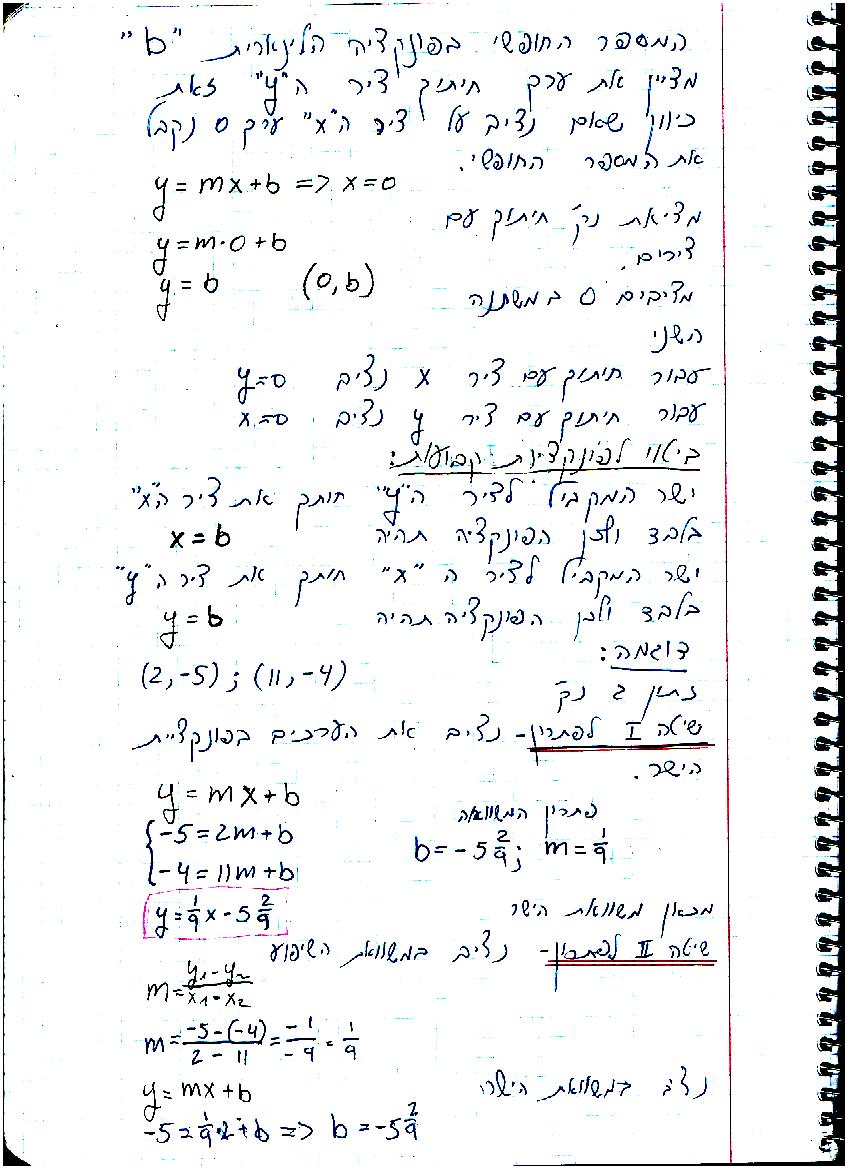 המספר החופשי בפונקציה הלינארית "b"
מציין את ערך חיתוך ציר ה"y" זאת
כיוון שאם נציב על ציר ה"x" ערך 0 נקבל
את המספר החופשי.
y = mx + b => x = 0
מציאת נק' חיתוך עם
צירים.
y = m·0 + b
y = b (0, b)
מציבים 0 במשתנה
השני
עבור חיתוך עם ציר x נציב y=0
עבור חיתוך עם ציר y נציב x=0
ביטוי לפונקציות קבועות:
ישר המקביל לציר ה"y" חותך את ציר ה"x"
בלבד ולכן הפונקציה תהיה x = b
ישר המקביל לציר ה "x" חותך את ציר ה"y"
בלבד ולכן הפונקציה תהיה y = b
דוגמה:
(2, -5) ; (11, -4)
נתון 2 נק'
שיטה I לפתרון - נציב את הערכים בפונקציית
הישר.
y = mx + b
פתרון המשוואה
{ -5 = 2m + b
-4 = 11m + b
b = -5 2/9 ; m = 1/9
y = 1/9 x - 5 2/9
מכאן משוואת הישר
שיטה II לפתרון - נציב במשוואת השיפוע
m = y₁ - y₂ / x₁ - x₂
m = -5 - (-4) / 2 - 11 = -1 / -9 = 1/9
נציב במשוואת הישר:
y = mx + b
-5 = 1/9 · 2 + b => b = -5 2/9